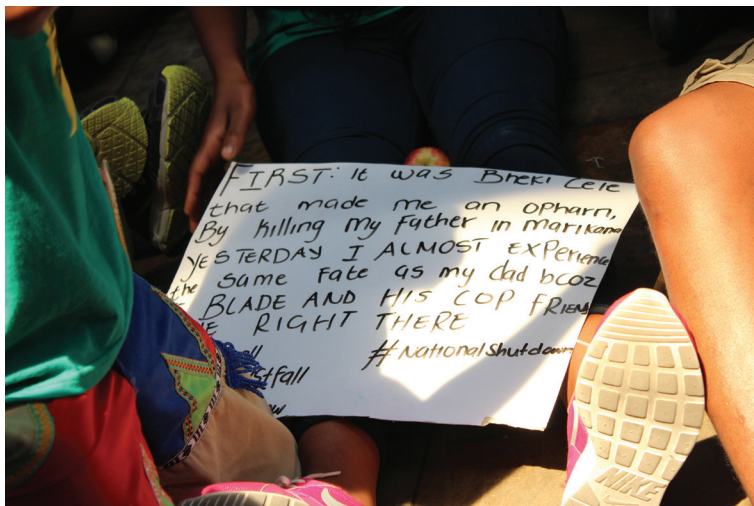 FIRST: It was Bheki Cele
that made me an opharn,
By killing my Father in Marikana
YESTERDAY I ALMOST EXPerience
the same Fate as my dad bcoz
BLADE AND HIS COP FRIEN
RIGHT THERE
#NationalShutdown
NIKE